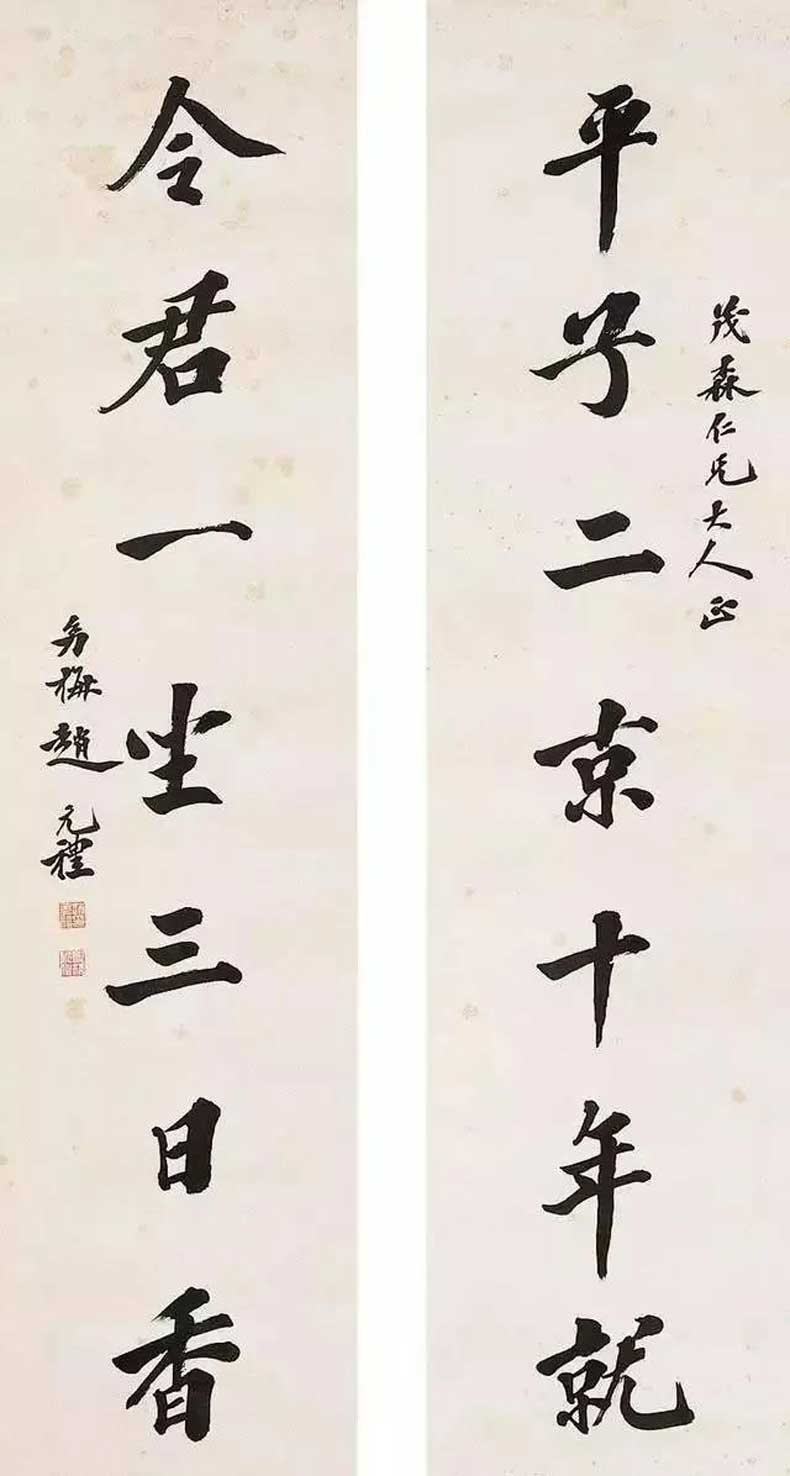 茂森仁兄大人正
平子二京十年就
令君一坐三日香
幼梅趙元禮